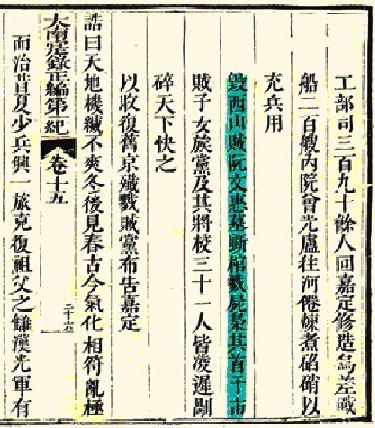 工部司三百九十餘人回嘉定修造烏差戰
船二百艘內院曾光盧往河僊煉煮硝以
充兵用
毀西山賊阮文惠墓斲棺戮屍梟其首于市
賊子女族黨及其將校三十一人皆凌遲顯
碎天下快之
以收復舊京殲戮賊黨布告嘉定
誥曰天地機緘不爽冬後見春古今氣化相符亂極
大南寔錄正編第一紀 卷十五 二十六
而治昔夏少兵興一旅克復祖父之讎漢光軍有